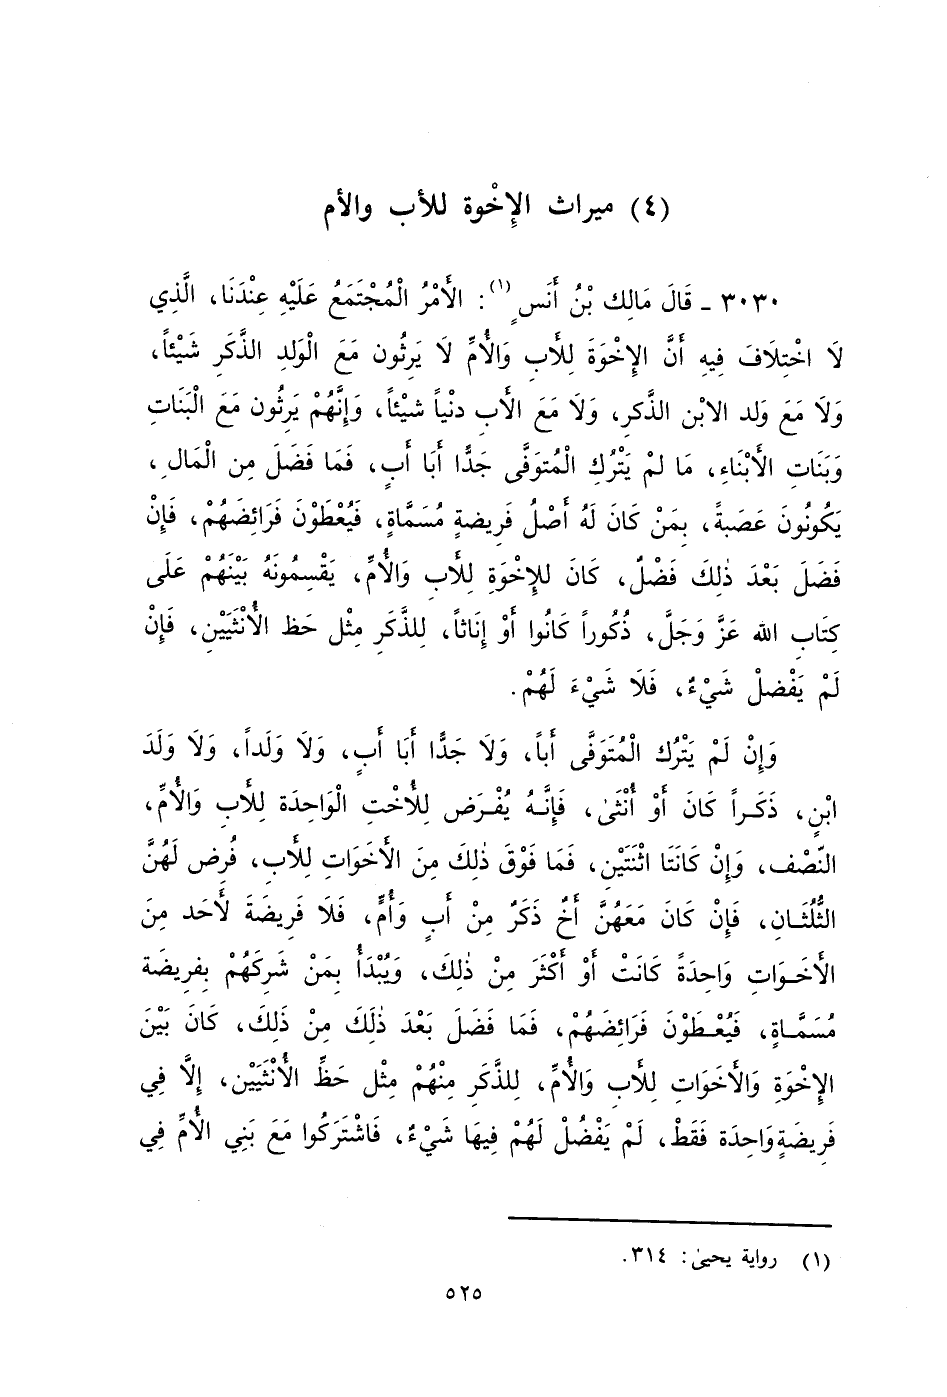 (٤) ميراث الإِخْوة للأب والأم
٣٠٣٠ - قَالَ مَالِك بْنُ أَنَسٍ (١): الأَمْرُ الْمُجْتَمَعُ عَلَيْهِ عِنْدَنَا، الَّذِي
لَا اخْتِلَافَ فِيهِ أَنَّ الإِخْوَةَ لِلأَبِ وَالأُمِّ لَا يَرِثُون مَعَ الْوَلَدِ الذَّكَرِ شَيْئاً،
وَلَا مَعَ وَلَدِ الابْنِ الذَّكرِ، وَلَا مَعَ الأَبِ دنْياً شيْئاً، وَإِنَّهُمْ يَرِثُون مَعَ الْبَنَاتِ
وَبَنَاتِ الأَبْنَاءِ، مَا لمْ يَتْرُكِ الْمُتوَفَّى جَدًّا أَبَا أَبٍ، فَمَا فَضَلَ مِن الْمَالِ،
يَكُونُونَ عَصَبةً، بِمَنْ كَانَ لَهُ أَصْلُ فَرِيضةٍ مُسَمَّاةٍ، فَيُعْطَوْنَ فَرَائِضَهُمْ، فَإِنْ
فَضَلَ بَعْدَ ذٰلِكَ فَضْلٌ، كَانَ لِلإِخْوَةِ لِلأَبِ وَالأُمِّ، يَقْسِمُونَهُ بَيْنَهُمْ عَلَى
كِتَابِ اللهِ عَزَّ وَجَلَّ، ذُكُوراً كَانُوا أَوْ إِنَاثاً، لِلذَّكَرِ مِثْل حَظِ الأُنْثَيَيْنِ، فَإِنْ
لَمْ يَفْضلْ شَيْءٌ، فَلَا شَيْءَ لَهُمْ.
وَإِنْ لَمْ يَتْرُك الْمُتَوَفَّى أَباً، وَلَا جَدًّا أَبَا أَبٍ، وَلَا وَلَداً، وَلَا وَلَدَ
ابْنٍ، ذَكَراً كَانَ أَوْ أُنْثَىٰ، فَإِنَّهُ يُفْرَضِ لِلأُخْتِ الْوَاحِدَةِ لِلأَبِ وَالأُمِّ،
النِّصْف، وَإِنْ كَانَتَا اثْنَتَيْنِ، فَمَا فَوْقَ ذٰلِكَ مِنَ الأَخَوَاتِ لِلأَبِ، فُرِضَ لَهُنَّ
الثُّلُثَانِ، فَإِنْ كَانَ مَعَهُنَّ أَخٌ ذَكَرٌ مِنْ أَبٍ وَأُمٍّ، فَلَا فَرِيضَةَ لأَحَدٍ مِنَ
الأَخَوَاتِ وَاحِدَةً كَانَتْ أَوْ أَكْثَرَ مِنْ ذٰلِكَ، وَيُبْدَأُ بِمَنْ شَرِكَهُمْ بِفَرِيضَةٍ
مُسَمَّاةٍ، فَيُعْطَوْنَ فَرَائِضَهُمْ، فَمَا فَضَلَ بَعْدَ ذٰلَكَ مِنْ ذَلِكَ، كَانَ بَيْنَ
الإِخْوَةِ وَالأَخَوَاتِ لِلأَبِ وَالأُمِّ، لِلذَّكَرِ مِنْهُمْ مِثْل حَظِّ الأُنْثَيَيْنِ، إِلَّا فِي
فَرِيضَةٍ وَاحِدَة فَقَطْ، لَمْ يَفْضُلْ لَهُمْ فِيهَا شَيْءٌ، فَاشْتَرَكُوا مَعَ بَنِي الأُمِّ فِي
(١) رواية يحيىٰ: ٣١٤.
٥٢٥